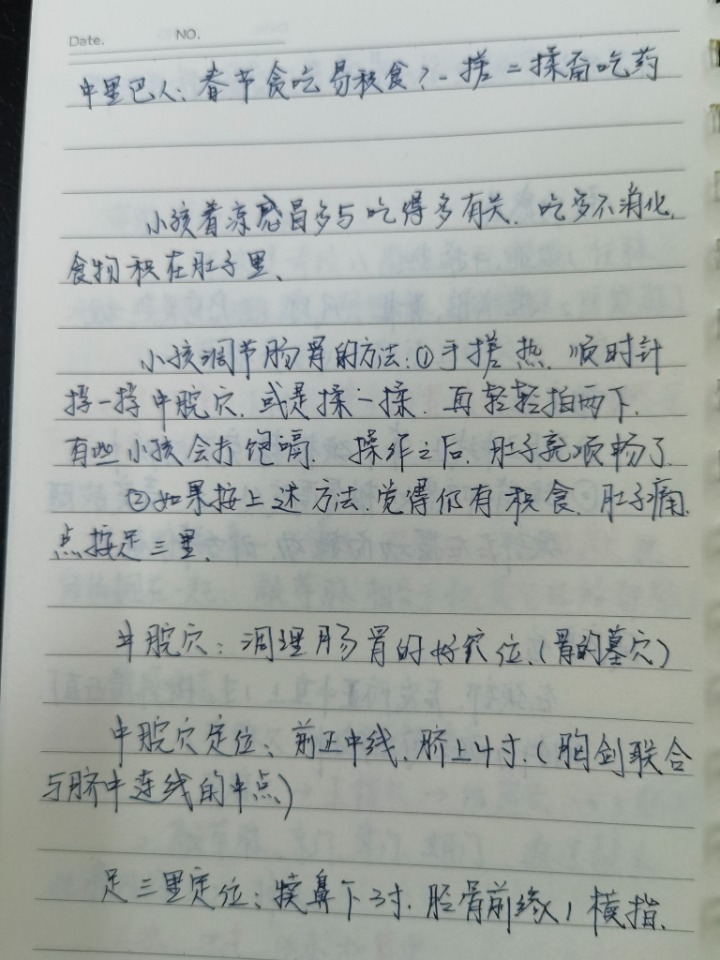 Date. NO.
中里巴人：春节贪吃易积食？一搓二揉甭吃药
小孩着凉感冒多与吃得多有关．吃多不消化，
食物积在肚子里、
小孩调节肠胃的方法：①手搓热．顺时针
捋一捋中脘穴．或是揉一揉．再轻轻拍两下．
有些小孩会打饱嗝．操作之后．肚子就顺畅了．
②如果按上述方法．觉得仍有积食、肚子痛．
点按足三里、
中脘穴：调理肠胃的好穴位．(胃的墓穴)
中脘穴定位：前正中线．脐上4寸．(胸剑联合
与脐中连线的中点)
足三里定位：犊鼻下3寸．胫骨前缘1横指．